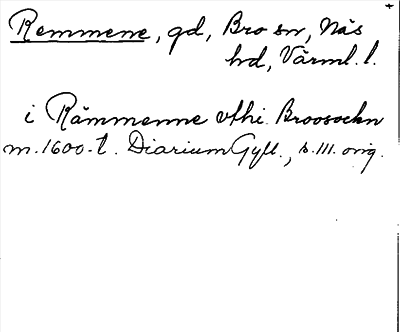 Remmene, gd, Bro sn, Näs
hd, Värml. l.
i Rämmenne vthi Broosockn
m. 1600-t. Diarium Gyll., s. 111. orig.